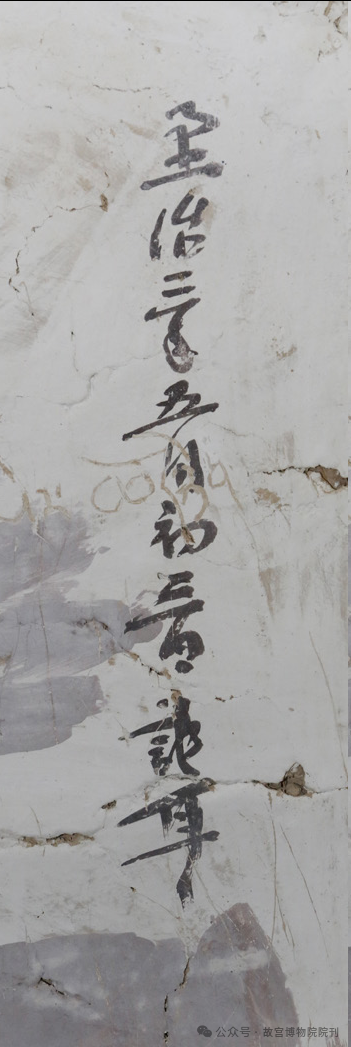 至治三年五月初三日記耳
公众号 · 故宫博物院院刊